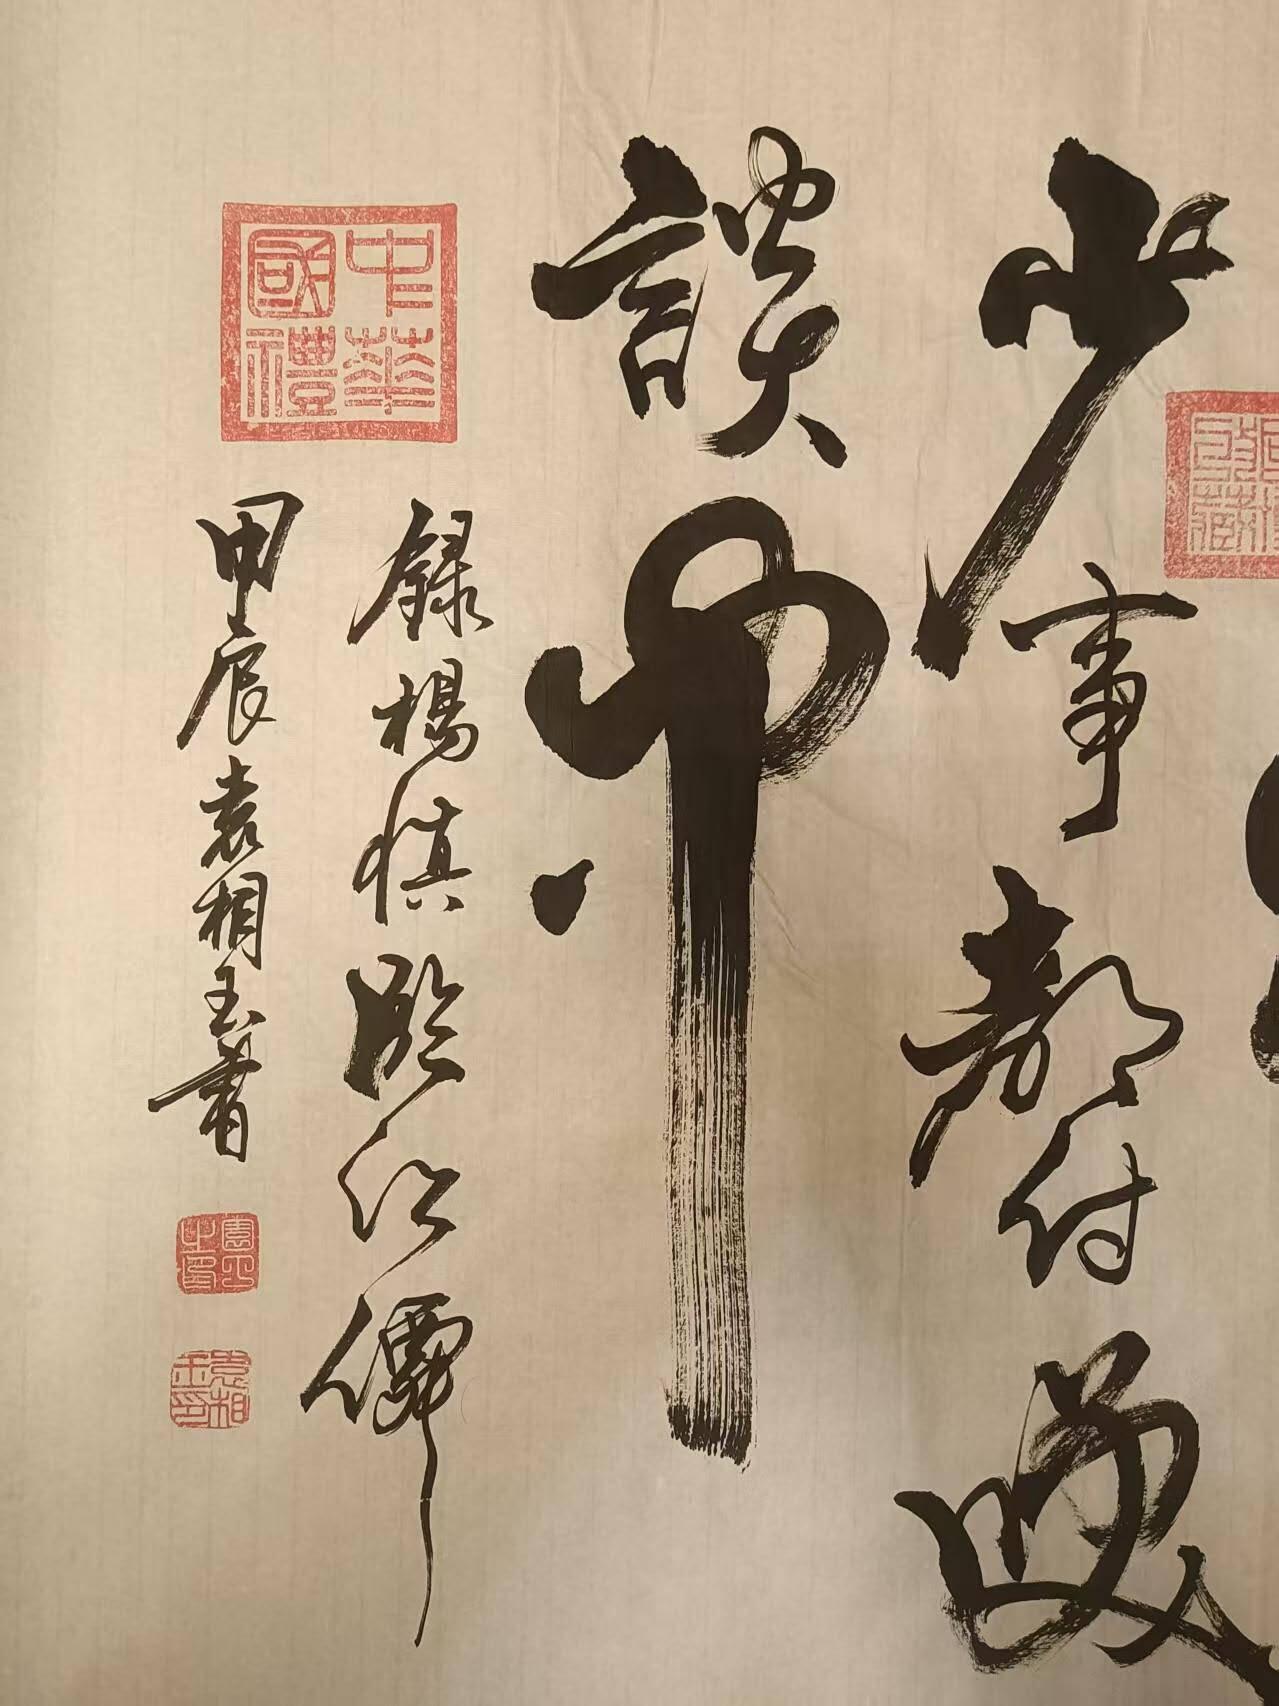 少事都付笑
談中
錄楊慎臨江僊
甲辰袁相玉書
中華國禮
袁相玉印